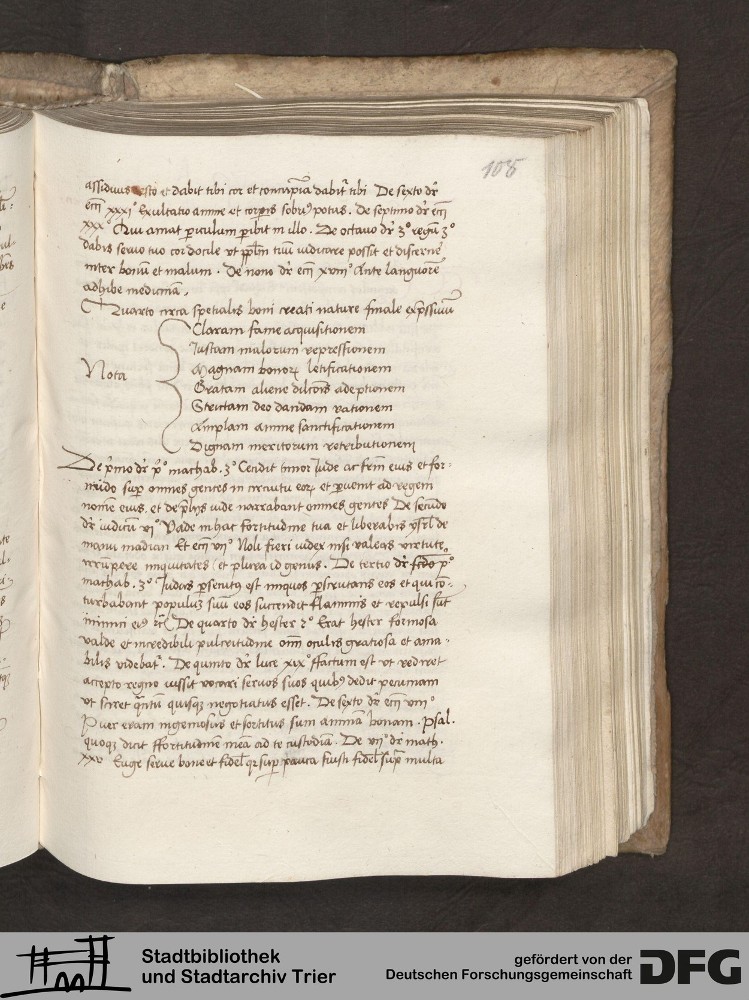 105
assiduus esto et dabit tibi cor et concupīa dabit̄ tibi De sexto dr̄
ecc̄i xxxi° Exultatio anime et corpis sobri9 potus. De septimo dr̄ ecc̄i
xxx° Qui amat piculum pibit in illo. De octauo dr̄ 3° regū 3°
dabis seruo tuo cor docile vt pplm tuū iudicare possit et discerne
inter bonū et malum. De nono dr̄ ecc̄i xviii° Ante languorē
adhibe medicinam.
Quarto circa spetialis boni creati nature finale expssiuū
Claram fame acquisitionem
Iustam malorum repressionem
Magnam bonorꝝ letificationem
Nota
Gratam aliene dilcōis adeptionem
Strictam deo dandam rationem
Amplam anime sanctificationem
Dignam meritorum retributionem
De pmo dr̄ p° machab. 3° Cecidit timor Iude ac frm̄ eius et for-
mido sup omnes gentes in circuitu eorꝝ et puenit ad regem
nomē eius, et de plijs iude narrabant omnes gentes De secūdo
dr̄ iudicū vi° Vade in hac fortitudine tua et liberabis ysrl de
manu madian Et ecc̄i vii° Noli fieri iudex nisi valeas virtute
irrūpere iniquitates et plura id genus. De tertio dr̄ p°
machab. 3° Iudas psecut9 est iniquos pscrutans eos et qui cō-
turbabant populū suū eos succendit flammis et repulsi sūt
inimici ei9 De quarto dr̄ hester 2° Erat hester formosa
valde et incredibili pulcritudine oīm oculis gratiosa et ama-
bilis videbat̄. De quinto dr̄ luce xix° ffactum est vt rediret
accepto regno iussit vocari seruos suos quib9 dedit pecuniam
vt sciret qntū quisqꝫ negotiatus esset. De sexto dr̄ ecc̄i viii°
Puer eram ingeniosus et sortitus sum animā bonam. Psal.
quoqꝫ dicit ffortitudinē meā ad te custodiā. De vii° dr̄ math.
xxv Euge serue bone et fidel qꝛ sup pauca fuisti fidel sup multa
Stadtbibliothek
und Stadtarchiv Trier
gefördert von der
Deutschen Forschungsgemeinschaft
DFG